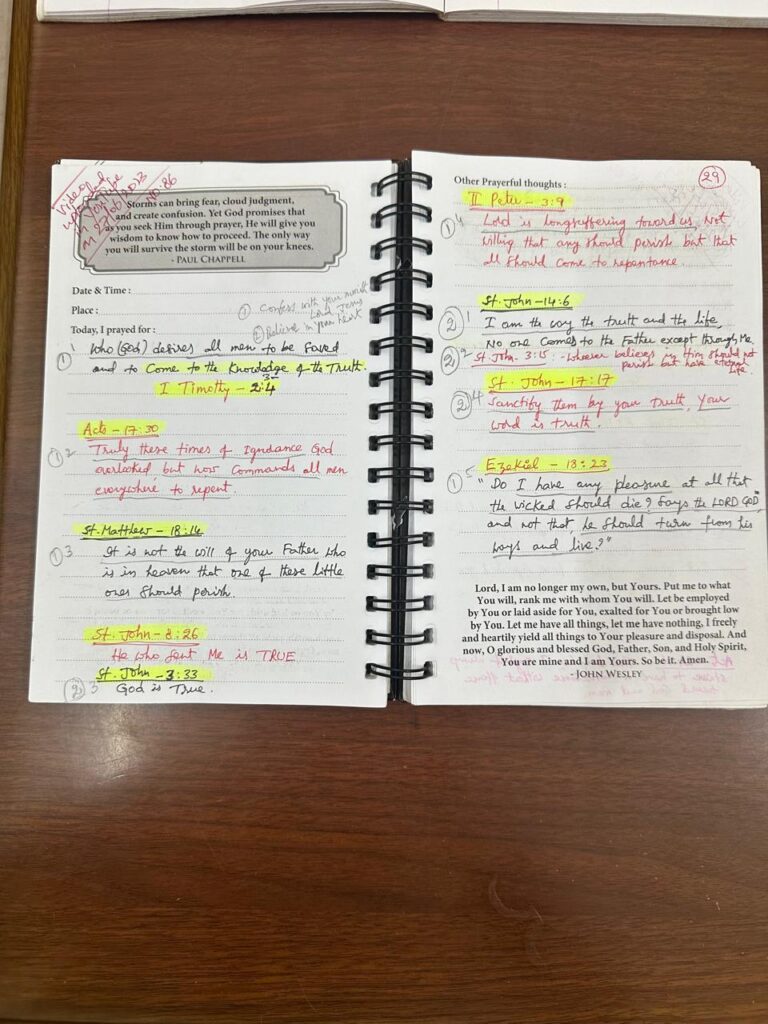 Video uploaded
in YouTube
on 27 Feb 2023
NO: 86
Storms can bring fear, cloud judgment,
and create confusion. Yet God promises that
as you seek Him through prayer, He will give you
wisdom to know how to proceed. The only way
you will survive the storm will be on your knees.
- PAUL CHAPPELL
Date & Time :
Place :
① Confess with your mouth
Lord Jesus
Today, I prayed for :
② Believe in your heart
① 1 Who (God) desires all men to be Saved
and to Come to the Knowledge of the Truth.
I Timothy - 2:3-4
Acts - 17:30
① 2 Truly these times of Ignorance God
overlooked but now Commands all men
everywhere to repent.
St. Matthew - 18:14
① 3 It is not the will of your Father who
is in heaven that one of these little
ones should perish.
St. John - 8:26
He who sent Me is TRUE
St. John - 3:33
② 3 God is True.
29
Other Prayerful thoughts :
II Peter - 3:9
① 4 Lord is longsuffering toward us, Not
willing that any should perish but that
all should come to repentance.
St. John - 14:6
② 1 I am the way the truth and the life,
No one comes to the Father except through Me.
② 2 St. John 3:15 - Whoever believes in Him should not
perish but have eternal
life
St. John - 17:17
② 4 Sanctify them by your Truth, Your
word is truth.
Ezekiel - 18:23
① 5 "Do I have any pleasure at all that
the wicked should die? Says the LORD GOD"
and not that he should turn from his
ways and live?"
Lord, I am no longer my own, but Yours. Put me to what
You will, rank me with whom You will. Let be employed
by You or laid aside for You, exalted for You or brought low
by You. Let me have all things, let me have nothing, I freely
and heartily yield all things to Your pleasure and disposal. And
now, O glorious and blessed God, Father, Son, and Holy Spirit,
You are mine and I am Yours. So be it. Amen.
- JOHN WESLEY